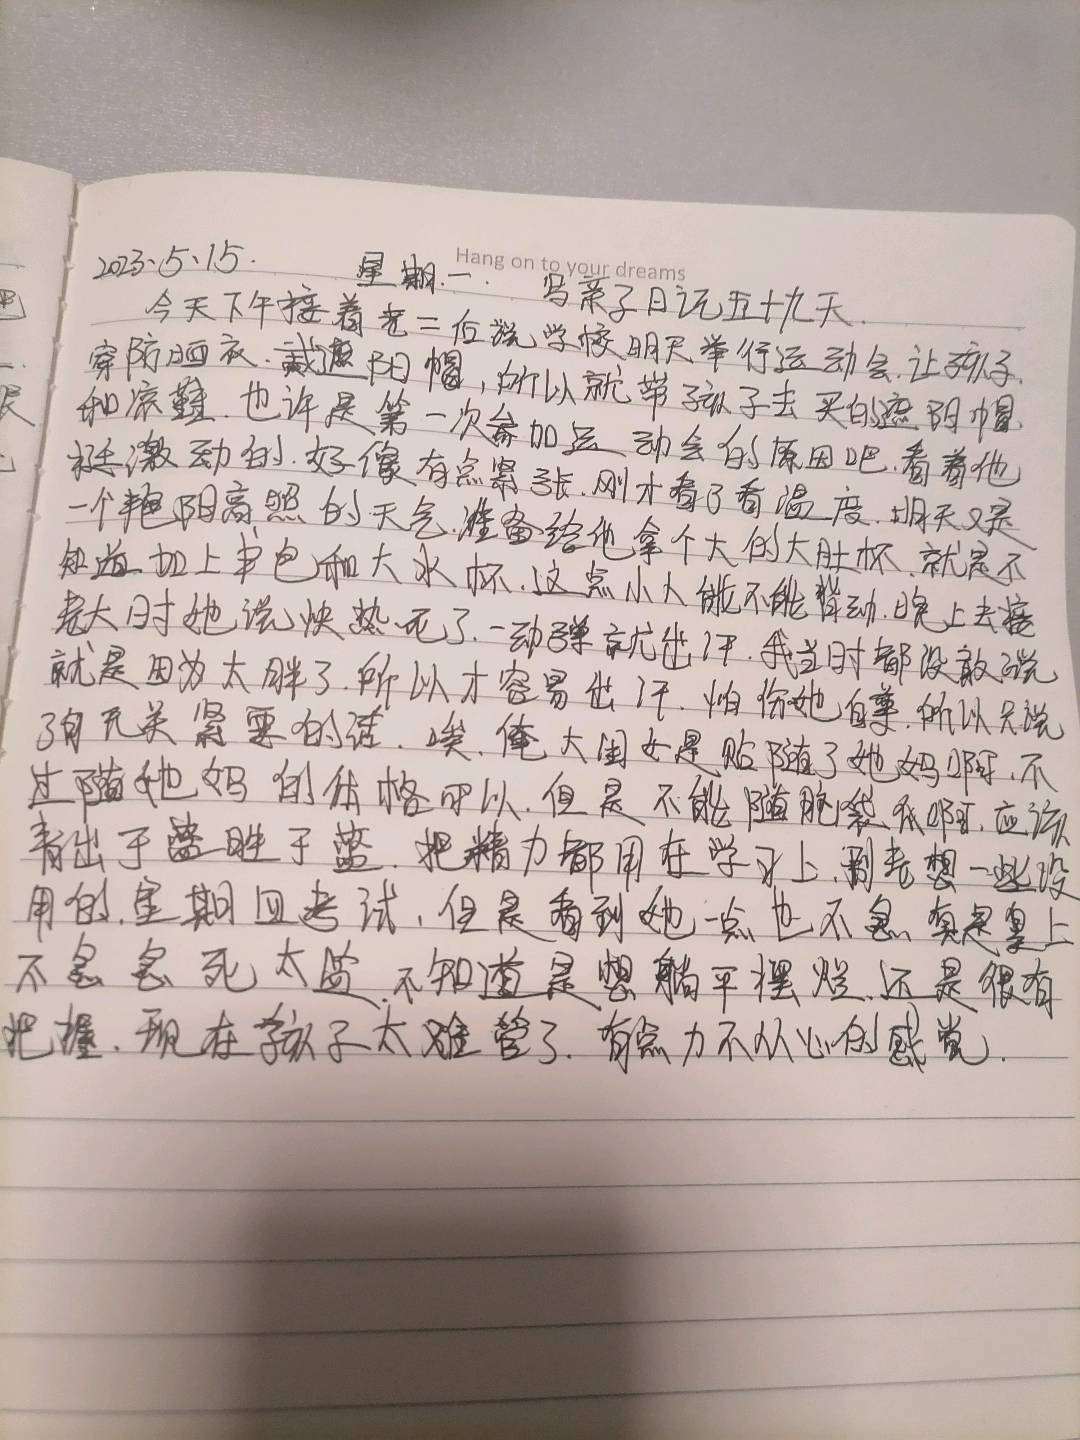 Hang on to your dreams
2023、5、15. 星期一. 写亲子日记五十九天.
今天下午接着老二后说学校明天举行运动会.让孩子.
穿防晒衣.戴遮阳帽,所以就带孩子去买的遮阳帽
和凉鞋.也许是第一次参加运动会的原因吧.看着他
挺激动的.好像有点紧张.刚才看了看温度.明天又是
一个艳阳高照的天气.准备给他拿个大的大肚杯.就是不
知道加上书包和大水杯.这点小人能不能背动.晚上去接
老大时她说快热死了.一动弹就出汗.我当时都没敢说
就是因为太胖了.所以才容易出汗.怕伤她自尊.所以只说
了句无关紧要的话.唉.俺大闺女是贴随了她妈啊.不
过随她妈的体格可以.但是不能随脑袋瓜啊.应该
青出于蓝胜于蓝.把精力都用在学习上.别老想一些没
用的.星期四考试.但是看到她一点也不急.真是皇上
不急急死太监.不知道是想躺平摆烂.还是很有
把握.现在孩子太难管了.有点力不从心的感觉.